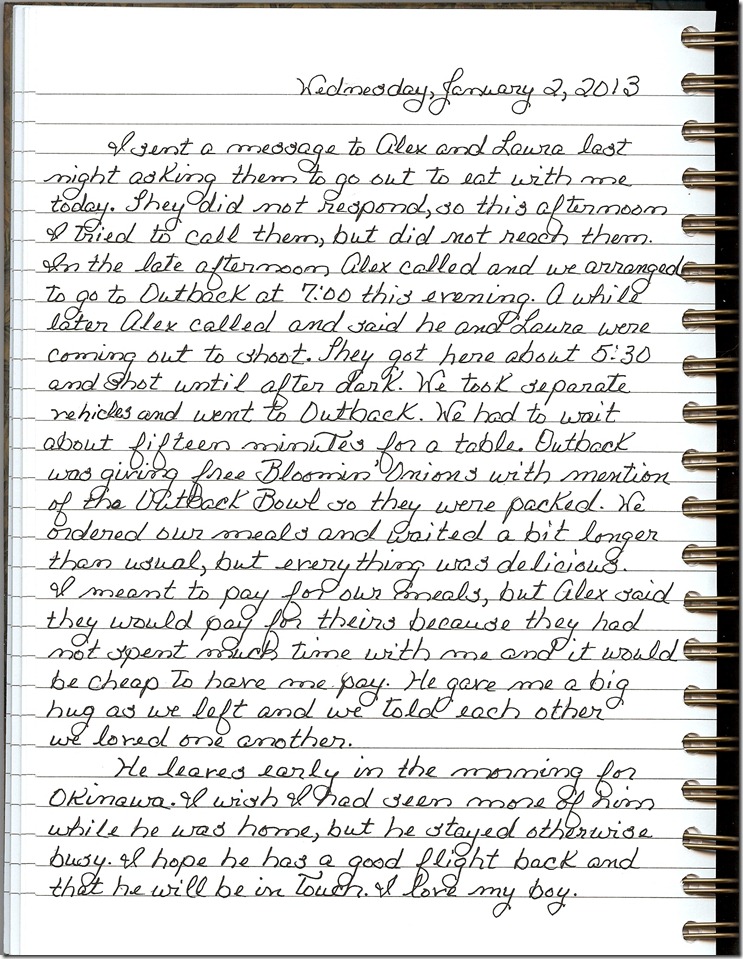 Wednesday, January 2, 2013
I sent a message to Alex and Laura last
night asking them to go out to eat with me
today. They did not respond, so this afternoon
I tried to call them, but did not reach them.
In the late afternoon, Alex called and we arranged
to go to Outback at 7:00 this evening. A while
later Alex called and said he and Laura were
coming out to shoot. They got here about 5:30
and shot until after dark. We took separate
vehicles and went to Outback. We had to wait
about fifteen minutes for a table. Outback
was giving free Bloomin' Onions with mention
of the Outback Bowl so they were packed. We
ordered our meals and waited a bit longer
than usual, but everything was delicious.
I meant to pay for our meals, but Alex said
they would pay for theirs because they had
not spent much time with me and it would
be cheap to have me pay. He gave me a big
hug as we left and we told each other
we loved one another.
He leaves early in the morning for
Okinawa. I wish I had seen more of him
while he was home, but he stayed otherwise
busy. I hope he has a good flight back and
that he will be in touch. I love my boy.